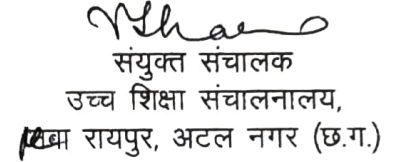 संयुक्त संचालक
उच्च शिक्षा संचालनालय,
रायपुर, अटल नगर (छ.ग.)